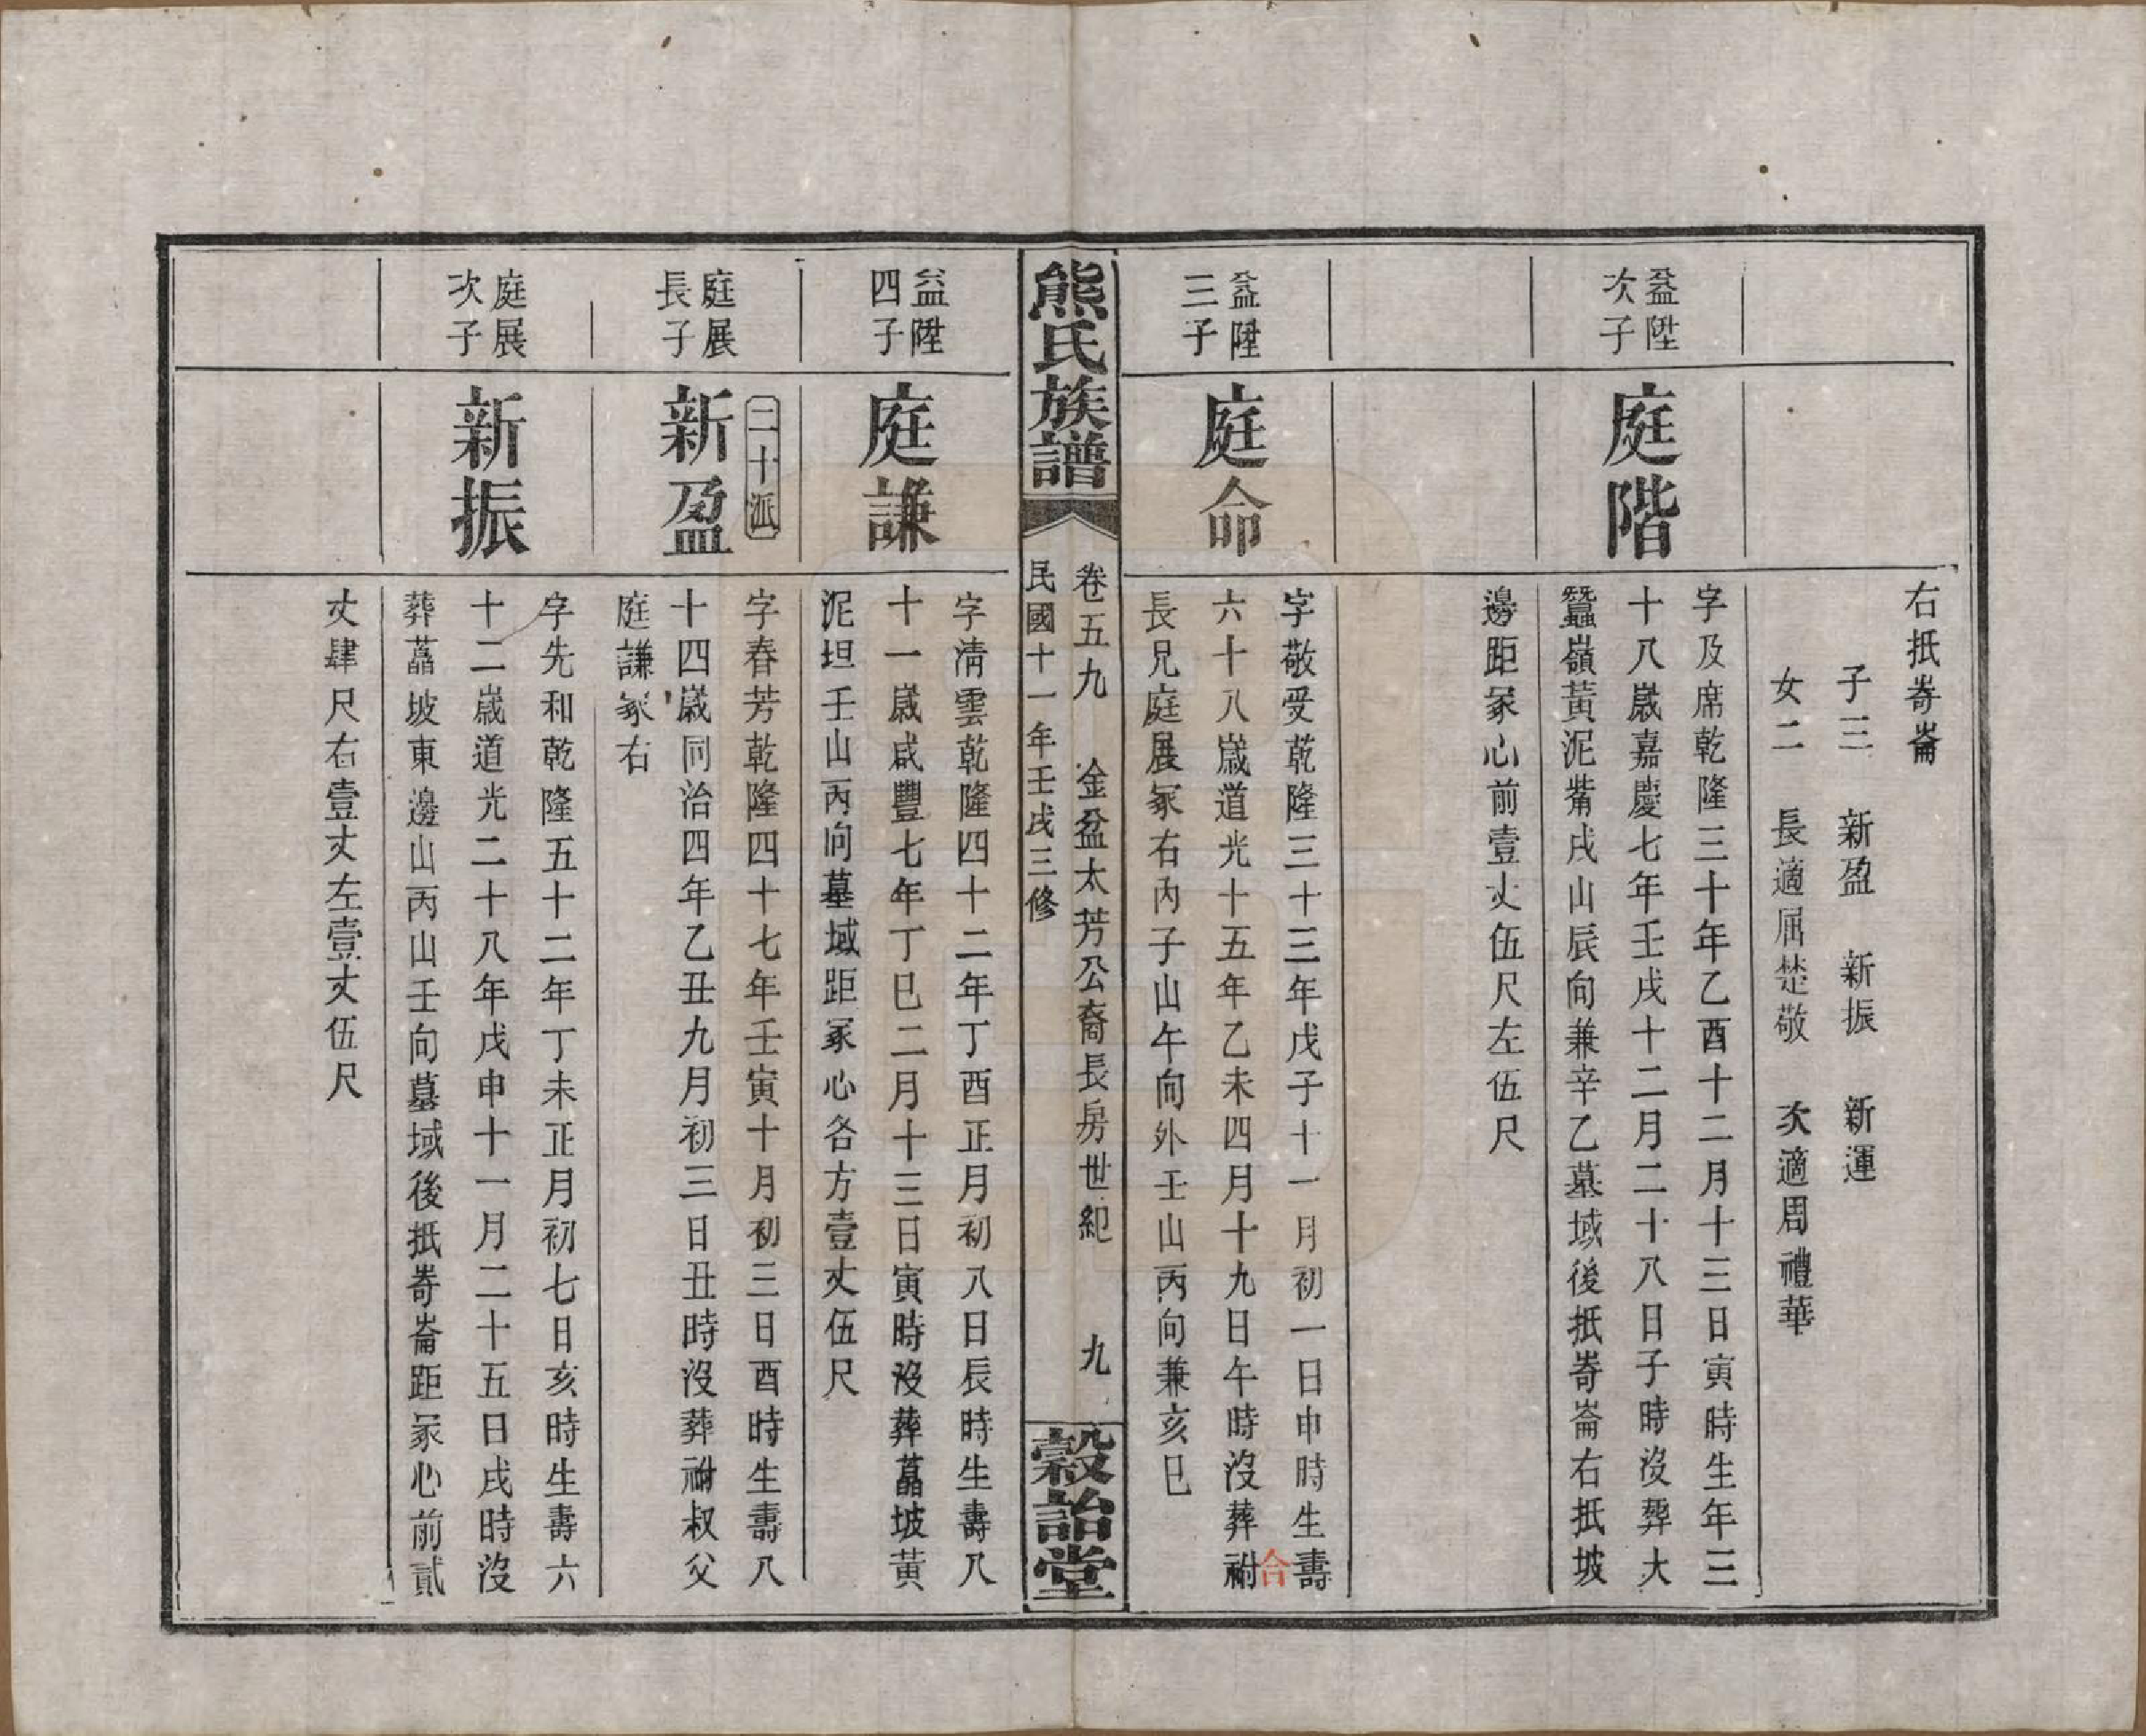 右抵嵜崙
子三　新盈　新振　新運
女二　長適屈楚敬　次適周禮華
益陞
次子
庭階
字及席乾隆三十年乙酉十二月十三日寅時生年三
十八歲嘉慶七年壬戌十二月二十八日子時沒葬大
蠶嶺黃泥觜戌山辰向兼辛乙墓域後抵嵜崙右抵坡
邊距冢心前壹丈伍尺左伍尺
益陞
三子
庭命
字敬受乾隆三十三年戊子十一月初一日申時生壽
六十八歲道光十五年乙未四月十九日午時沒葬祔
合
長兄庭展冢右內子山午向外壬山丙向兼亥巳
熊氏族譜
卷五九　金盆太芳公裔長房世紀　九
民國十一年壬戌三修
穀詒堂
益陞
四子
庭謙
字清雲乾隆四十二年丁酉正月初八日辰時生壽八
十一歲咸豐七年丁巳二月十三日寅時沒葬藠坡黃
泥坦壬山丙向墓域距冢心各方壹丈伍尺
二十派
庭展
長子
新盈
字春芳乾隆四十七年壬寅十月初三日酉時生壽八
十四歲同治四年乙丑九月初三日丑時沒葬祔叔父
庭謙冢右
庭展
次子
新振
字先和乾隆五十二年丁未正月初七日亥時生壽六
十二歲道光二十八年戊申十一月二十五日戌時沒
葬藠坡東邊山丙山壬向墓域後抵嵜崙距冢心前貳
丈肆尺右壹丈左壹丈伍尺